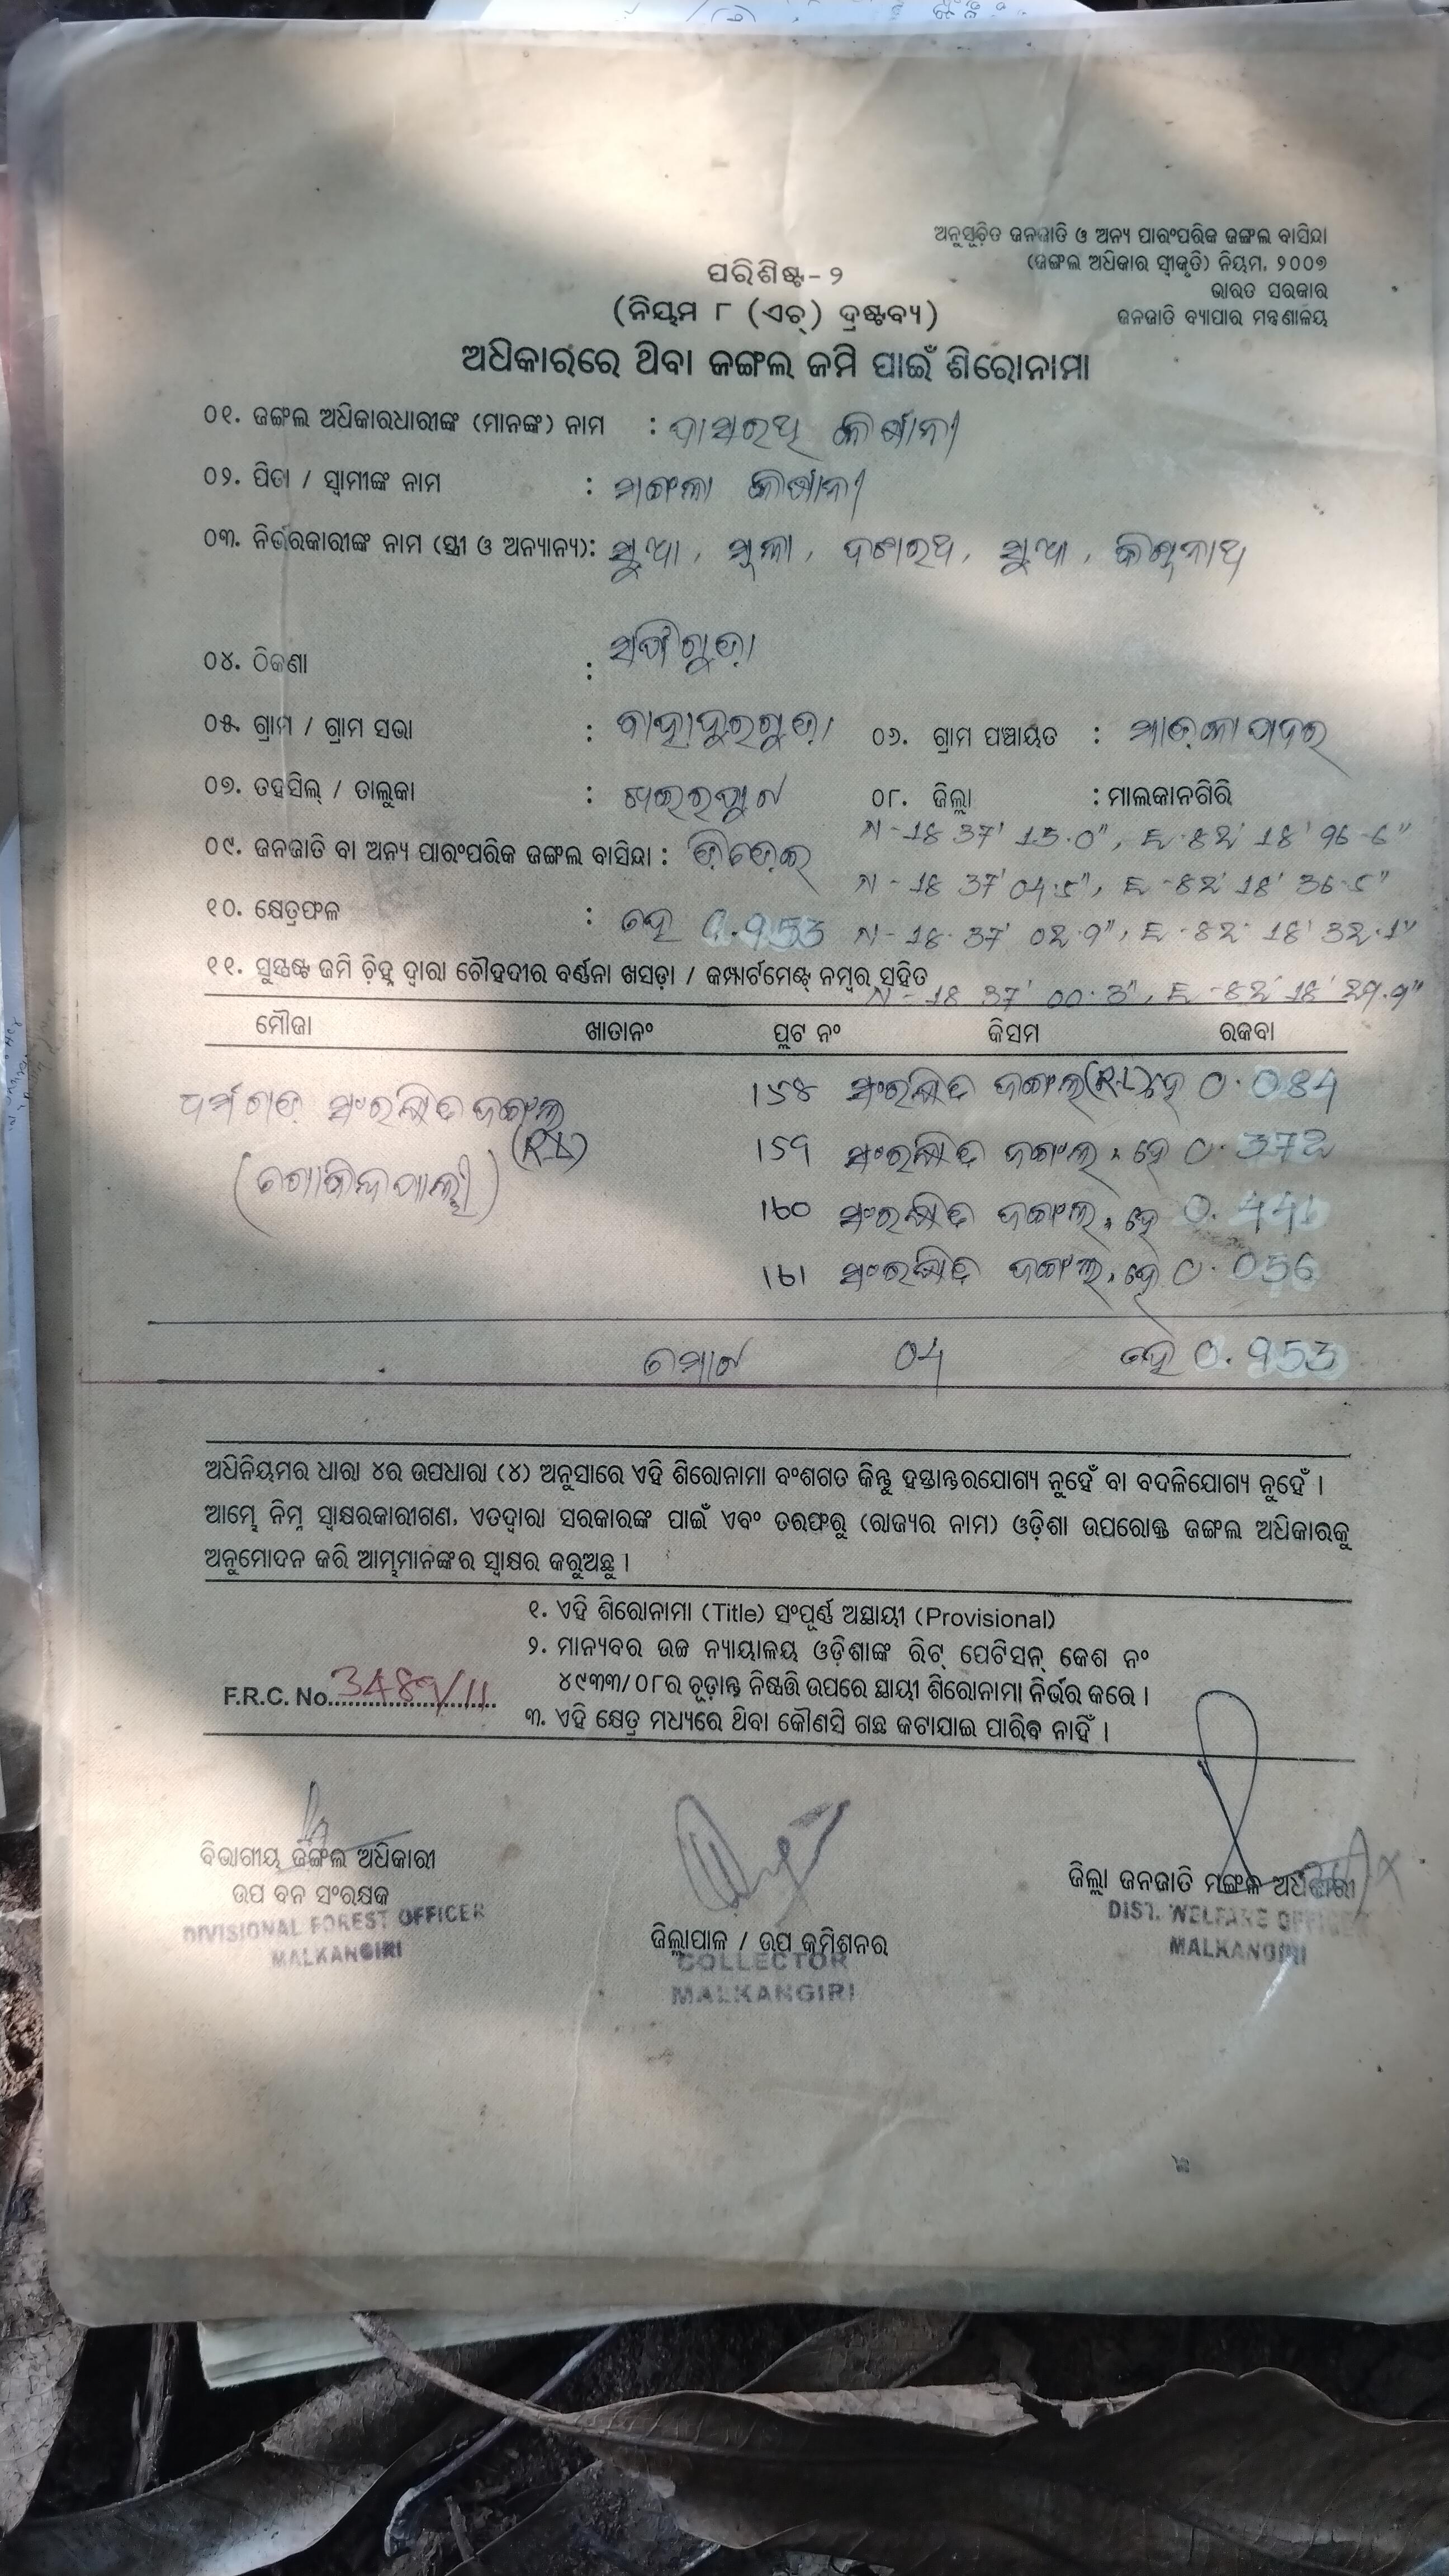 ଅନୁସୂଚିତ ଜନଜାତି ଓ ଅନ୍ୟ ପାରଂପରିକ ଜଙ୍ଗଲ ବାସିନ୍ଦା
(ଜଙ୍ଗଲ ଅଧିକାର ସ୍ୱୀକୃତି) ନିୟମ, ୨୦୦୭
ଭାରତ ସରକାର
ଜନଜାତି ବ୍ୟାପାର ମନ୍ତ୍ରଣାଳୟ
ପରିଶିଷ୍ଟ- ୨
(ନିୟମ ୮ (ଏଚ୍) ଦ୍ରଷ୍ଟବ୍ୟ)
ଅଧିକାରରେ ଥିବା ଜଙ୍ଗଲ ଜମି ପାଇଁ ଶିରୋନାମା
୦୧. ଜଙ୍ଗଲ ଅଧିକାରଧାରୀଙ୍କ (ମାନଙ୍କ) ନାମ :
୦୨. ପିତା / ସ୍ୱାମୀଙ୍କ ନାମ : ମଙ୍ଗଳା
୦୩. ନିର୍ଭରକାରୀଙ୍କ ନାମ (ସ୍ତ୍ରୀ ଓ ଅନ୍ୟାନ୍ୟ):
୦୪. ଠିକଣା :
୦୫. ଗ୍ରାମ / ଗ୍ରାମ ସଭା : ବାହାଦୁରଗୁଡ଼ା ୦୬. ଗ୍ରାମ ପଞ୍ଚାୟତ :
୦୭. ତହସିଲ୍ / ତାଲୁକା : ଖଇରପୁଟ ୦୮. ଜିଲ୍ଲା : ମାଲକାନଗିରି
N-18 37' 13.0", E-82' 18' 96-6"
୦୯. ଜନଜାତି ବା ଅନ୍ୟ ପାରଂପରିକ ଜଙ୍ଗଲ ବାସିନ୍ଦା :
N-18 37' 04.5", E-82' 18' 36.5"
୧୦. କ୍ଷେତ୍ରଫଳ : ହେ 0.953 N-18 37' 02.9", E-82' 18' 32.1"
୧୧. ସୁସ୍ପଷ୍ଟ ଜମି ଚିହ୍ନ ଦ୍ୱାରା ଚୌହଦୀର ବର୍ଣ୍ଣନା ଖସଡ଼ା / କମ୍ପାର୍ଟମେଣ୍ଟ୍ ନମ୍ବର ସହିତ
N-18 37' 00.3", E-82' 18' 29.9"
ମୌଜା ଖାତାନଂ ପ୍ଲଟ ନଂ କିସମ ରକବା
ଧର୍ମଗଡ଼ ସଂରକ୍ଷିତ ଜଙ୍ଗଲ ସଂରକ୍ଷିତ ଜଙ୍ଗଲ ହେ 0.084
159 ସଂରକ୍ଷିତ ଜଙ୍ଗଲ, ହେ 0.372
(ଗୋବିନ୍ଦପାଲ୍ଲୀ) 160 ସଂରକ୍ଷିତ ଜଙ୍ଗଲ, ହେ 0.441
161 ସଂରକ୍ଷିତ ଜଙ୍ଗଲ, ହେ 0.056
ମୋଟ 04 ହେ 0.953
ଅଧିନିୟମର ଧାରା ୪ର ଉପଧାରା (୪) ଅନୁସାରେ ଏହି ଶିରୋନାମା ବଂଶଗତ କିନ୍ତୁ ହସ୍ତାନ୍ତରଯୋଗ୍ୟ ନୁହେଁ ବା ବଦଳିଯୋଗ୍ୟ ନୁହେଁ ।
ଆମ୍ଭେ ନିମ୍ନ ସ୍ୱାକ୍ଷରକାରୀଗଣ, ଏତଦ୍ୱାରା ସରକାରଙ୍କ ପାଇଁ ଏବଂ ତରଫରୁ (ରାଜ୍ୟର ନାମ) ଓଡ଼ିଶା ଉପରୋକ୍ତ ଜଙ୍ଗଲ ଅଧିକାରକୁ
ଅନୁମୋଦନ କରି ଆମ୍ଭମାନଙ୍କର ସ୍ୱାକ୍ଷର କରୁଅଛୁ ।
୧. ଏହି ଶିରୋନାମା (Title) ସଂପୂର୍ଣ୍ଣ ଅସ୍ଥାୟୀ (Provisional)
୨. ମାନ୍ୟବର ଉଚ୍ଚ ନ୍ୟାୟାଳୟ ଓଡ଼ିଶାଙ୍କ ରିଟ୍ ପେଟିସନ୍ କେଶ ନଂ
୪୯୩୩/୦୮ର ଚୂଡ଼ାନ୍ତ ନିଷ୍ପତ୍ତି ଉପରେ ସ୍ଥାୟୀ ଶିରୋନାମା ନିର୍ଭର କରେ ।
F.R.C. No. 3489/11
୩. ଏହି କ୍ଷେତ୍ର ମଧ୍ୟରେ ଥିବା କୌଣସି ଗଛ କଟାଯାଇ ପାରିବ ନାହିଁ ।
ବିଭାଗୀୟ ଜଙ୍ଗଲ ଅଧିକାରୀ
ଉପ ବନ ସଂରକ୍ଷକ
DIVISIONAL FOREST OFFICER
MALKANGIRI
ଜିଲ୍ଲାପାଳ / ଉପ କମିଶନର
COLLECTOR
MALKANGIRI
ଜିଲ୍ଲା ଜନଜାତି ମଙ୍ଗଳ ଅଧିକାରୀ
DIST. WELFARE OFFICER
MALKANGIRI